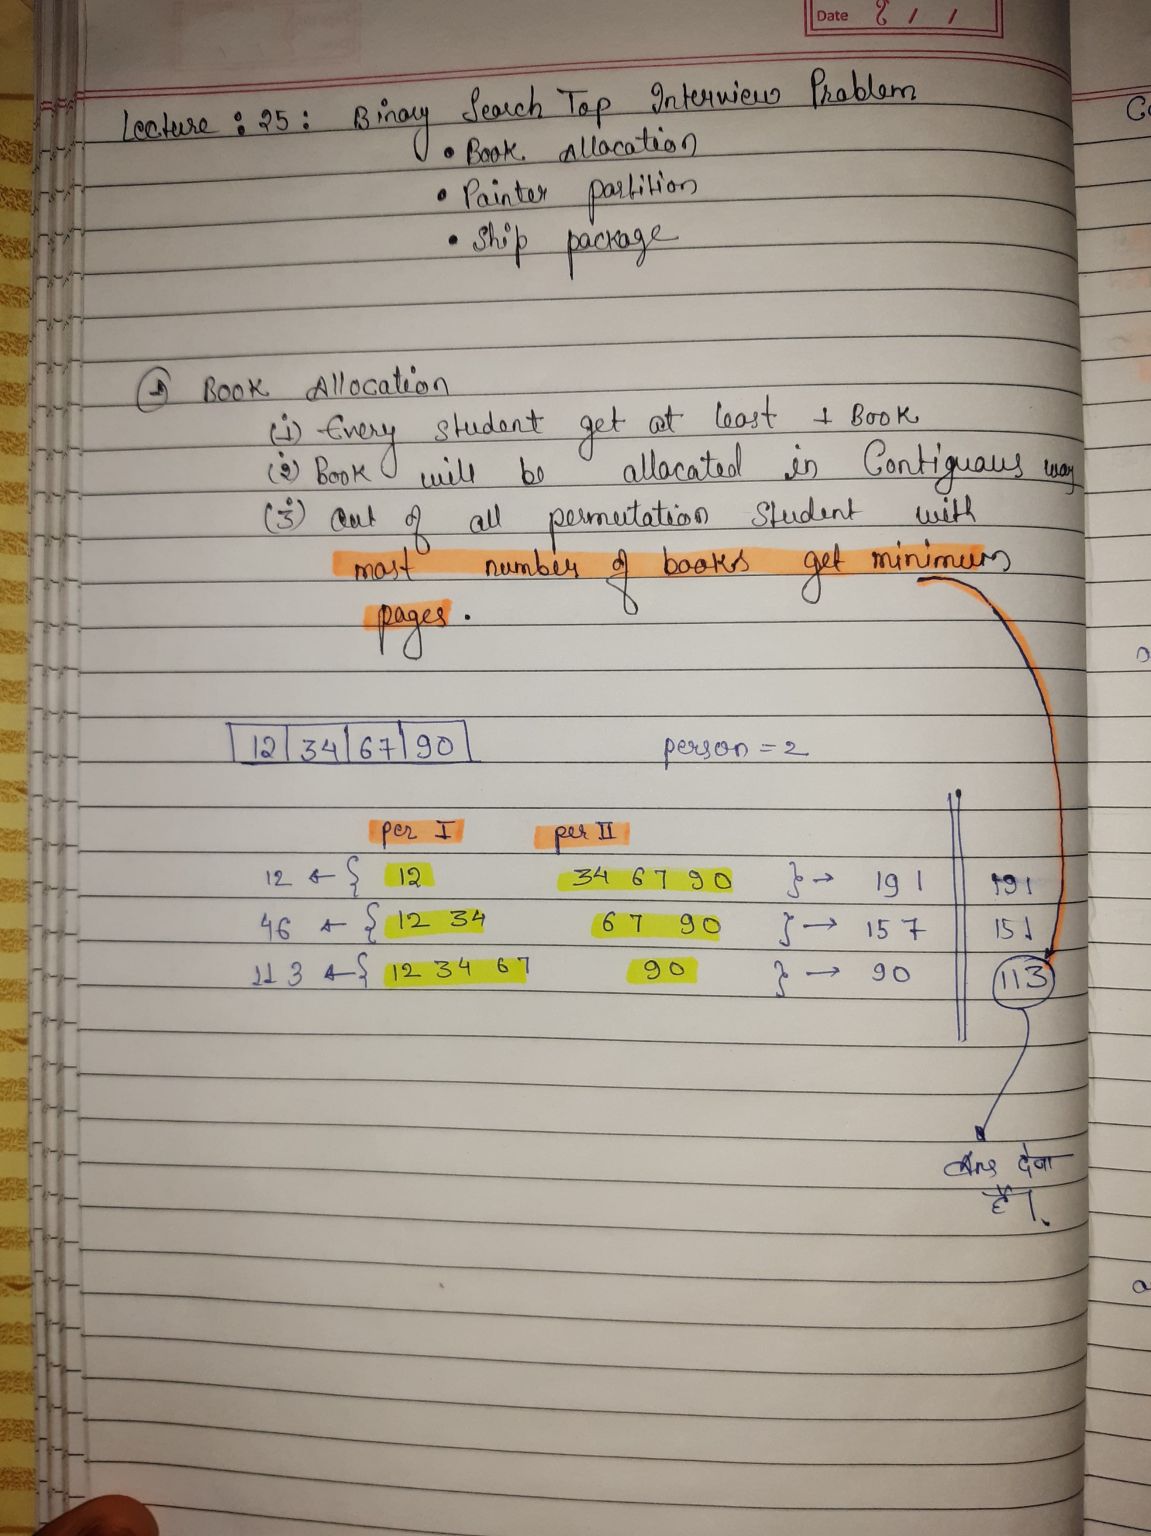 Date 8 / /
Lecture : 25 : Binary Search Top Interview Problem
• Book Allocation
• Painter partition
• Ship package
Book Allocation
(1) Every student get at least 1 Book
(2) Book will be allocated in Contiguous way
(3) Out of all permutation Student with
most number of books get minimum
pages.
12 34 67 90 person = 2
per I per II
12 ← { 12 34 67 90 } → 191 191
46 ← { 12 34 67 90 } → 157 157
113 ← { 12 34 67 90 } → 90 113
Ans देना
है।